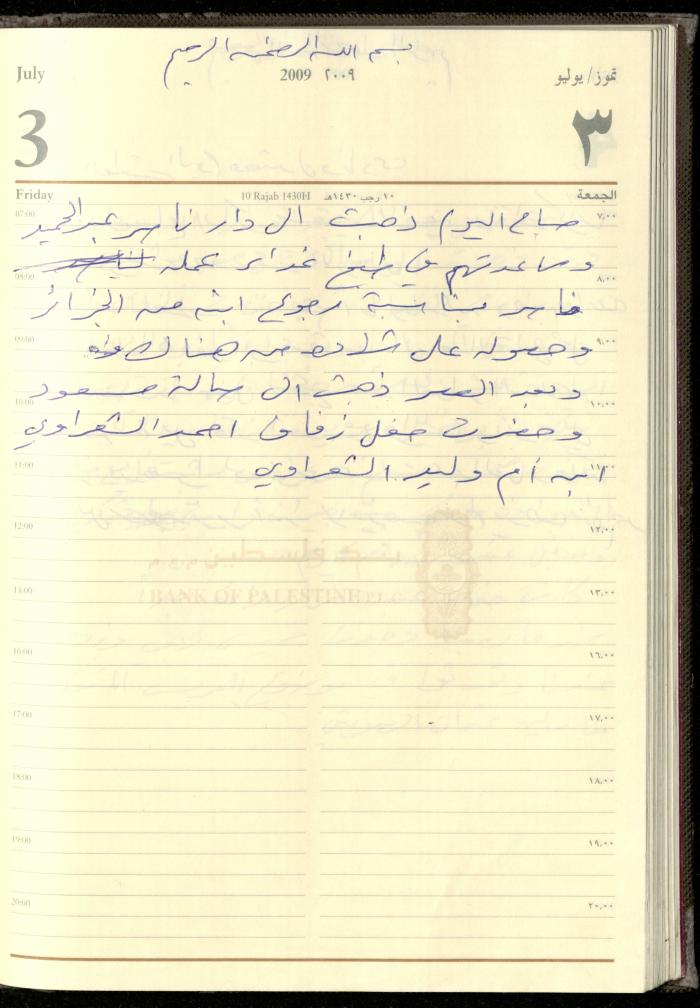 بسم الله الرحمن الرحيم
July
2009 ٢٠٠٩
تموز/يوليو
3
٣
Friday
10 Rajab 1430H ١٠ رجب ١٤٣٠هـ
الجمعة
07:00 صباح اليوم ذهبت الى دار ناصر عبد الحميد ٧,٠٠
وساعدتهم في طبخ غداء عمله
08:00 ٨,٠٠
ناصر بمناسبة رجوع ابنه من الجزائر
09:00 وحصوله على شهادة من هناك ٩,٠٠
وبعد العصر ذهبت الى صالة مسعود
10:00 ١٠,٠٠
وحضرت حفل زفاف احمد الشعراوي
11:00 ابن أم وليد الشعراوي ١١,٠٠
12:00 ١٢,٠٠
بنك فلسطين م.ع.م
13:00 BANK OF PALESTINE P.L.C ١٣,٠٠
16:00 ١٦,٠٠
17:00 ١٧,٠٠
18:00 ١٨,٠٠
19:00 ١٩,٠٠
20:00 ٢٠,٠٠